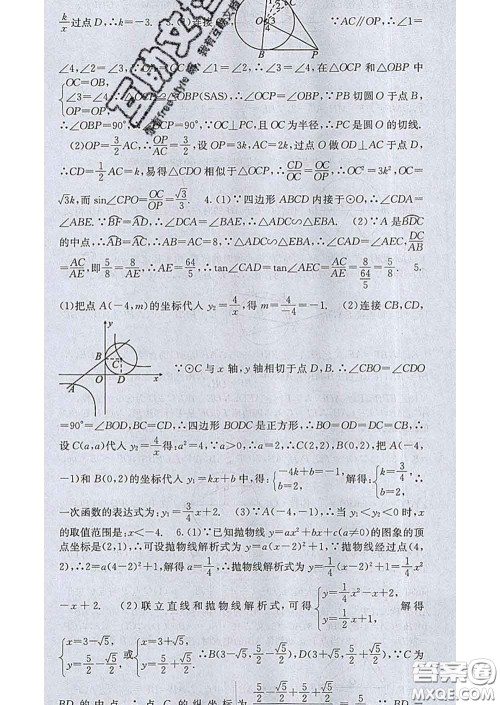 k/x 过点 D,∴k=-3. 3.(1)连接 ∵AC∥OP,∴∠1=
∠4,∠2=∠3,∵OA=OC,∴∠1=∠2,∴∠3=∠4,在△OCP 和△OBP 中
{OC=OB, ∠3=∠4, ∴△OCP≌△OBP(SAS),∴∠OCP=∠OBP.∵PB 切圆 O 于点 B,
∴∠OBP=90°,∴∠OCP=90°,∵OC⊥PC,且 OC 为半径,∴PC 是圆 O 的切线.
(2)OP=3/2 AC,∴OP/AC=3/2,设 OP=3k,AC=2k,过点 O 做 OD⊥AC 于点 D,
∴CD=1/2 AC=k,易得△CDO 相似于△OCP,∴CD/OC=OC/OP,∴OC²=3k²,OC=
√3k,而 sin∠CPO=OC/OP=√3/3. 4.(1)∵四边形 ABCD 内接于⊙O,∴∠CDA=
∠ABE.∵BF=AD,∴∠DCA=∠BAE,∴△ADC∽△EBA. (2)∵A 是BDC
的中点,∴AB=AC,∴AB=AC=8,∵△ADC∽△EBA,∴∠CAD=∠AEC,DC/AB=
AC/AE,即5/8=8/AE,∴AE=64/5,∴tan∠CAD=∠AEC=AC/AE=8/(64/5)=5/8. 5.
(1)把点 A(-4,m)的坐标代人 y₂=4/x,得 m=4/-4=-1. (2)连接 CB,CD,
y B C A O D x ∵⊙C 与 x 轴,y 轴相切于点 D,B,∴∠CBO=∠CDO
=90°=∠BOD,BC=CD,∴四边形 BODC 是正方形,∴BO=OD=DC=CB,∴
设 C(a,a)代人 y₂=4/x得:a²=4,∵a>0,∴a=2,∴C(2,2),B(0,2),把 A(-4,
-1)和 B(0,2)的坐标代人 y₁=kx+b 中,得:{-4k+b=-1, b=2, 解得:{k=3/4, b=2, ∴
一次函数的表达式为:y₁=3/4x+2. (3)∵A(-4,-1),∴当 y₁<y₂ 时,x
的取值范围是:x<-4. 6.(1)∵已知抛物线 y=ax²+bx+c(a≠0)的图象的顶
点坐标是(2,1),∴可设抛物线解析式为 y=a(x-2)²+1,∵抛物线经过点(4,
2),∴2=a(4-2)²+1,解得 a=1/4,∴抛物线解析式为 y=1/4(x-2)²+1=1/4x²
-x+2. (2)联立直线和抛物线解析式,可得{y=1/4x²-x+2, y=1/2x+1, 解得
{x=3-√5, y=5/2-√5/2 或{x=3+√5, y=5/2+√5/2, ∴B(3-√5,5/2-√5/2),D(3+√5,5/2+√5/2),∵C 为
BD 的中点,∴点 C 的纵坐标为